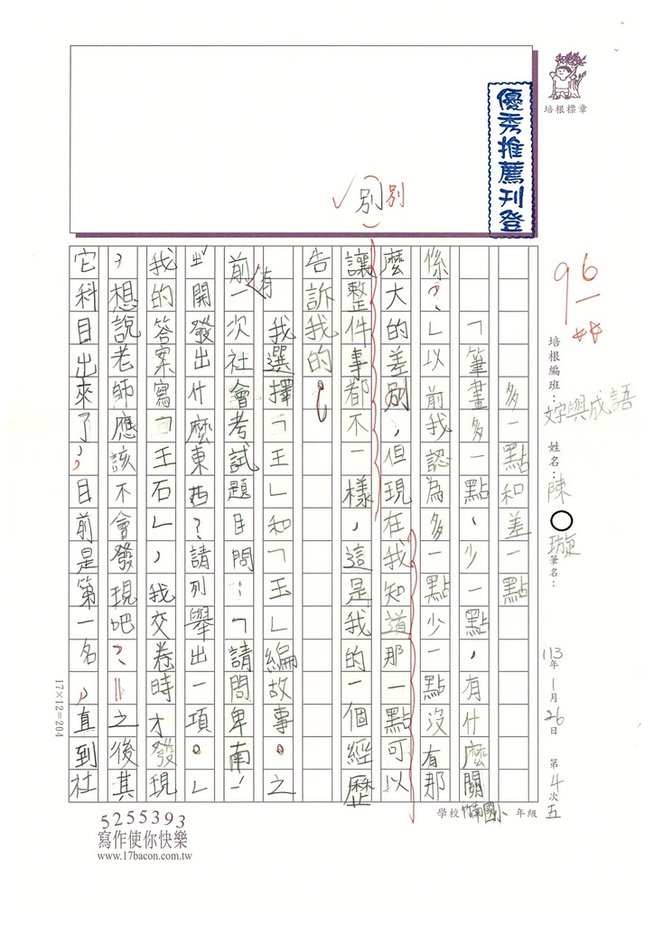 優秀推薦刊登
培根標章
別 別
96
培根編班：字與成語 姓名：陳○璇 筆名：
113年1月26日 第4次
學校 竹南國小 年級 五
多一點和差一點
「筆畫多一點、少一點，有什麼關
係？」以前我認為多一點少一點沒有那
麼大的差別，但現在我知道那一點可以
讓整件事都不一樣，這是我的一個經歷
告訴我的。
我選擇「王」和「玉」編故事。之
前有一次社會考試題目問：「請問卑南
開發出什麼東西？請列舉出一項。」
我的答案寫「王石」，我交卷時才發現
，想說老師應該不會發現吧？之後其
它科目出來了，目前是第一名，直到社
17×12=204
5255393
寫作使你快樂
www.17bacon.com.tw